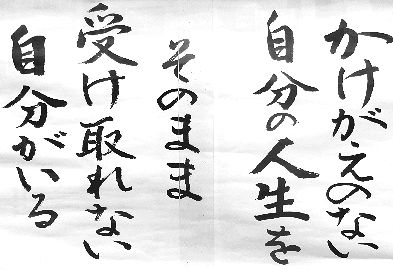 かけがえのない
自分の人生を
そのまま
受け取れない
自分がいる